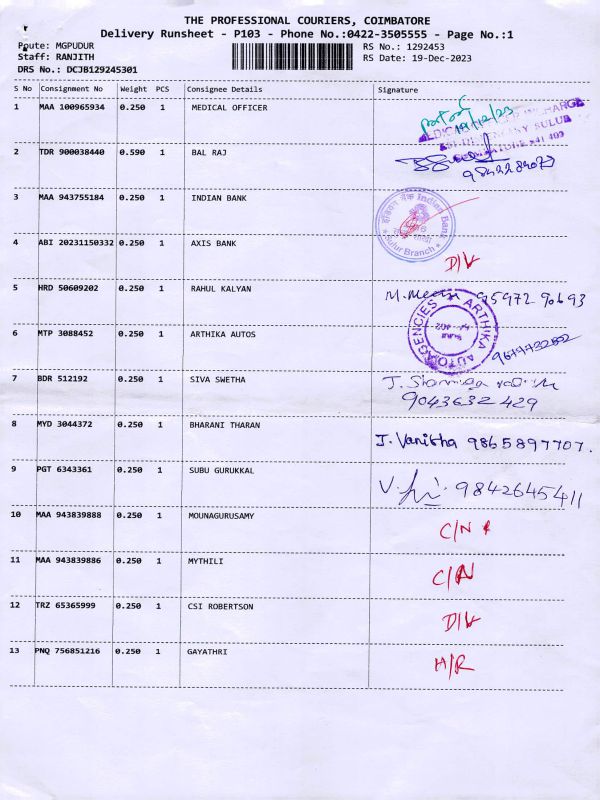 THE PROFESSIONAL COURIERS, COIMBATORE
Delivery Runsheet - P103 - Phone No.:0422-3505555 - Page No.:1
Poute: MGPUDUR
RS No.: 1292453
Staff: RANJITH
RS Date: 19-Dec-2023
DRS No.: DCJB129245301
S No Consignment No Weight PCS Consignee Details Signature
1 MAA 100965934 0.250 1 MEDICAL OFFICER
19/12/23
2 TDR 900038440 0.590 1 BAL RAJ
3 MAA 943755184 0.250 1 INDIAN BANK
इंडियन बैंक Indian Bank
Sulur Branch
4 ABI 20231150332 0.250 1 AXIS BANK D/V
5 HRD 50609202 0.250 1 RAHUL KALYAN M. Meera 95972 90693
6 MTP 3088452 0.250 1 ARTHIKA AUTOS
ARTHIKA AUTO AGENCIES
7 BDR 512192 0.250 1 SIVA SWETHA
9043632429
8 MYD 3044372 0.250 1 BHARANI THARAN J. Vanitha 9865897707.
9 PGT 6343361 0.250 1 SUBU GURUKKAL V. 9842645411
10 MAA 943839888 0.250 1 MOUNAGURUSAMY C/N
11 MAA 943839886 0.250 1 MYTHILI C/N
12 TRZ 65365999 0.250 1 CSI ROBERTSON D/V
13 PNQ 756851216 0.250 1 GAYATHRI H/R